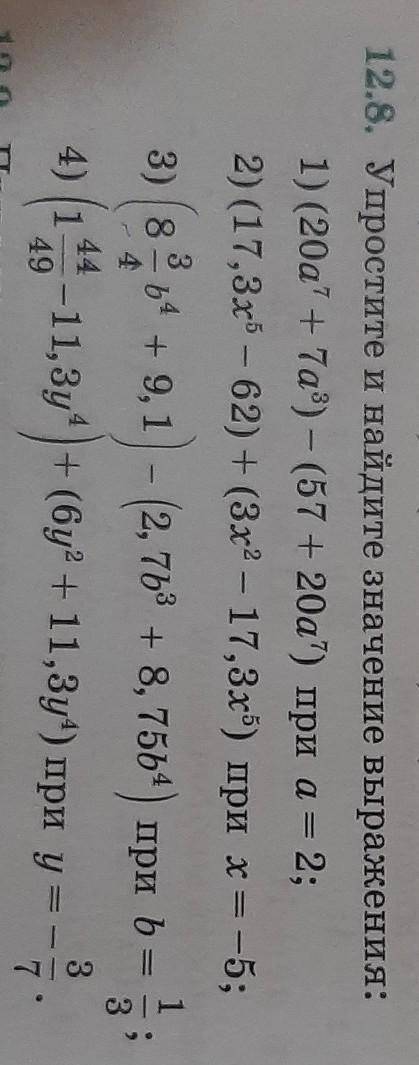 12.8. Упростите и найдите значение выражения:
1) (20a⁷ + 7a³) – (57 + 20a⁷) при a = 2;
2) (17,3x⁵ – 62) + (3x² – 17,3x⁵) при x = –5;
3) (8 3/4 b⁴ + 9,1) – (2,7b³ + 8,75b⁴) при b = 1/3;
4) (1 44/49 – 11,3y⁴) + (6y² + 11,3y⁴) при y = – 3/7.